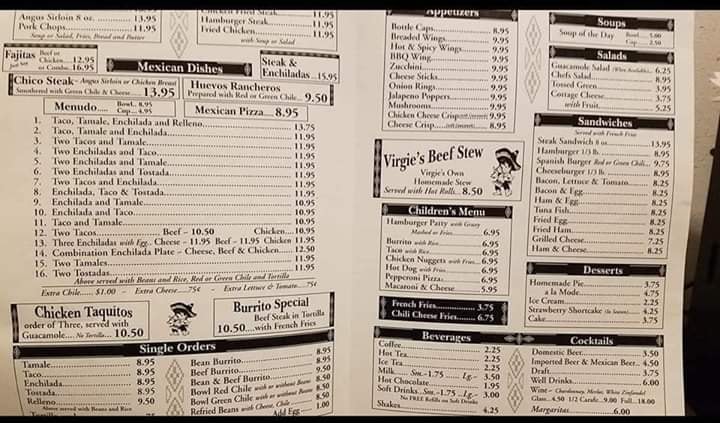 Angus Sirloin 8 oz. 13.95
Pork Chops 11.95
Soup or Salad, Fries, Bread and Butter
Chicken Fried Steak 11.95
Hamburger Steak 11.95
Fried Chicken 11.95
with Soup or Salad
Fajitas Beef or
Chicken 12.95
or Combo 16.95
Mexican Dishes
Steak &
Enchiladas 15.95
Chico Steak - Angus Sirloin or Chicken Breast
Smothered with Green Chile & Cheese 13.95
Huevos Rancheros
Prepared with Red or Green Chile 9.50
Menudo Bowl 8.95
Cup 4.95
Mexican Pizza 8.95
1. Taco, Tamale, Enchilada and Relleno 13.75
2. Taco, Tamale and Enchilada 11.95
3. Two Tacos and Tamale 11.95
4. Two Enchiladas and Taco 11.95
5. Two Enchiladas and Tamale 11.95
6. Two Tostadas and Enchilada 11.95
7. Two Tacos and Enchilada 11.95
8. Enchilada, Taco & Tostada 11.95
9. Enchilada and Tamale 10.95
10. Enchilada and Taco 10.95
11. Taco and Tamale 10.95
12. Two Tacos Beef - 10.50 Chicken 10.95
13. Three Enchiladas with Egg Cheese - 11.95 Beef - 11.95 Chicken 11.95
14. Combination Enchilada Plate - Cheese, Beef & Chicken 12.50
15. Two Tamales 11.95
16. Two Tostadas 11.95
Above served with Beans and Rice, Red or Green Chile and Tortilla
Extra Chile $1.00 - Extra Cheese 75¢ - Extra Lettuce & Tomato 75¢
Chicken Taquitos
order of Three, served with
Guacamole No Tortilla 10.50
Burrito Special
Beef Steak in Tortilla
10.50 with French Fries
Single Orders
Tamale 8.95
Taco 8.95
Enchilada 8.95
Tostada 8.95
Relleno 9.50
Above served with Beans and Rice
Bean Burrito 8.95
Beef Burrito 9.50
Bean & Beef Burrito 8.95
Bowl Red Chile with or without Beans 8.50
Bowl Green Chile with or without Beans 8.50
Refried Beans with Cheese, Chile 8.50
Add Egg 1.00
Appetizers
Bottle Caps 8.95
Breaded Wings 9.95
Hot & Spicy Wings 9.95
BBQ Wing 9.95
Zucchini 9.95
Cheese Sticks 9.95
Onion Rings 9.95
Jalapeno Poppers 9.95
Mushrooms 9.95
Chicken Cheese Crisp 9.95
Cheese Crisp 8.95
Virgie's Beef Stew
Virgie's Own
Homemade Stew
Served with Hot Rolls 8.50
Children's Menu
Hamburger Patty with Gravy
Mashed or Fries 6.95
Burrito with Rice 6.95
Taco with Rice 6.95
Chicken Nuggets with Fries 6.95
Hot Dog with Fries 6.95
Pepperoni Pizza 6.95
Macaroni & Cheese 5.95
French Fries 3.75
Chili Cheese Fries 6.75
Beverages
Coffee 2.25
Hot Tea 2.25
Ice Tea 2.25
Milk Sm.-1.75 Lg.- 3.50
Hot Chocolate 1.95
Soft Drinks Sm.-1.75 Lg.- 3.00
No FREE Refills on Soft Drinks
Shakes 4.25
Soups
Soup of the Day Bowl 5.00
Cup 2.50
Salads
Guacamole Salad (When Available) 6.25
Chefs Salad 8.95
Tossed Green 3.95
Cottage Cheese 3.75
with Fruit 5.25
Sandwiches
Served with French Fries
Steak Sandwich 8 oz. 13.95
Hamburger 1/3 lb. 8.95
Spanish Burger Red or Green Chile 9.75
Cheeseburger 1/3 lb. 8.95
Bacon, Lettuce & Tomato 8.25
Bacon & Egg 8.25
Ham & Egg 8.25
Tuna Fish 8.25
Fried Egg 8.25
Fried Ham 8.25
Grilled Cheese 7.25
Ham & Cheese 8.25
Desserts
Homemade Pie 3.75
a la Mode 4.75
Ice Cream 2.25
Strawberry Shortcake (In Season) 4.25
Cake 3.75
Cocktails
Domestic Beer 3.50
Imported Beer & Mexican Beer 4.50
Draft 3.75
Well Drinks 6.00
Wine - Chardonnay, Merlot, White Zinfandel
Glass 4.50 1/2 Carafe 9.00 Full 18.00
Margaritas 6.00